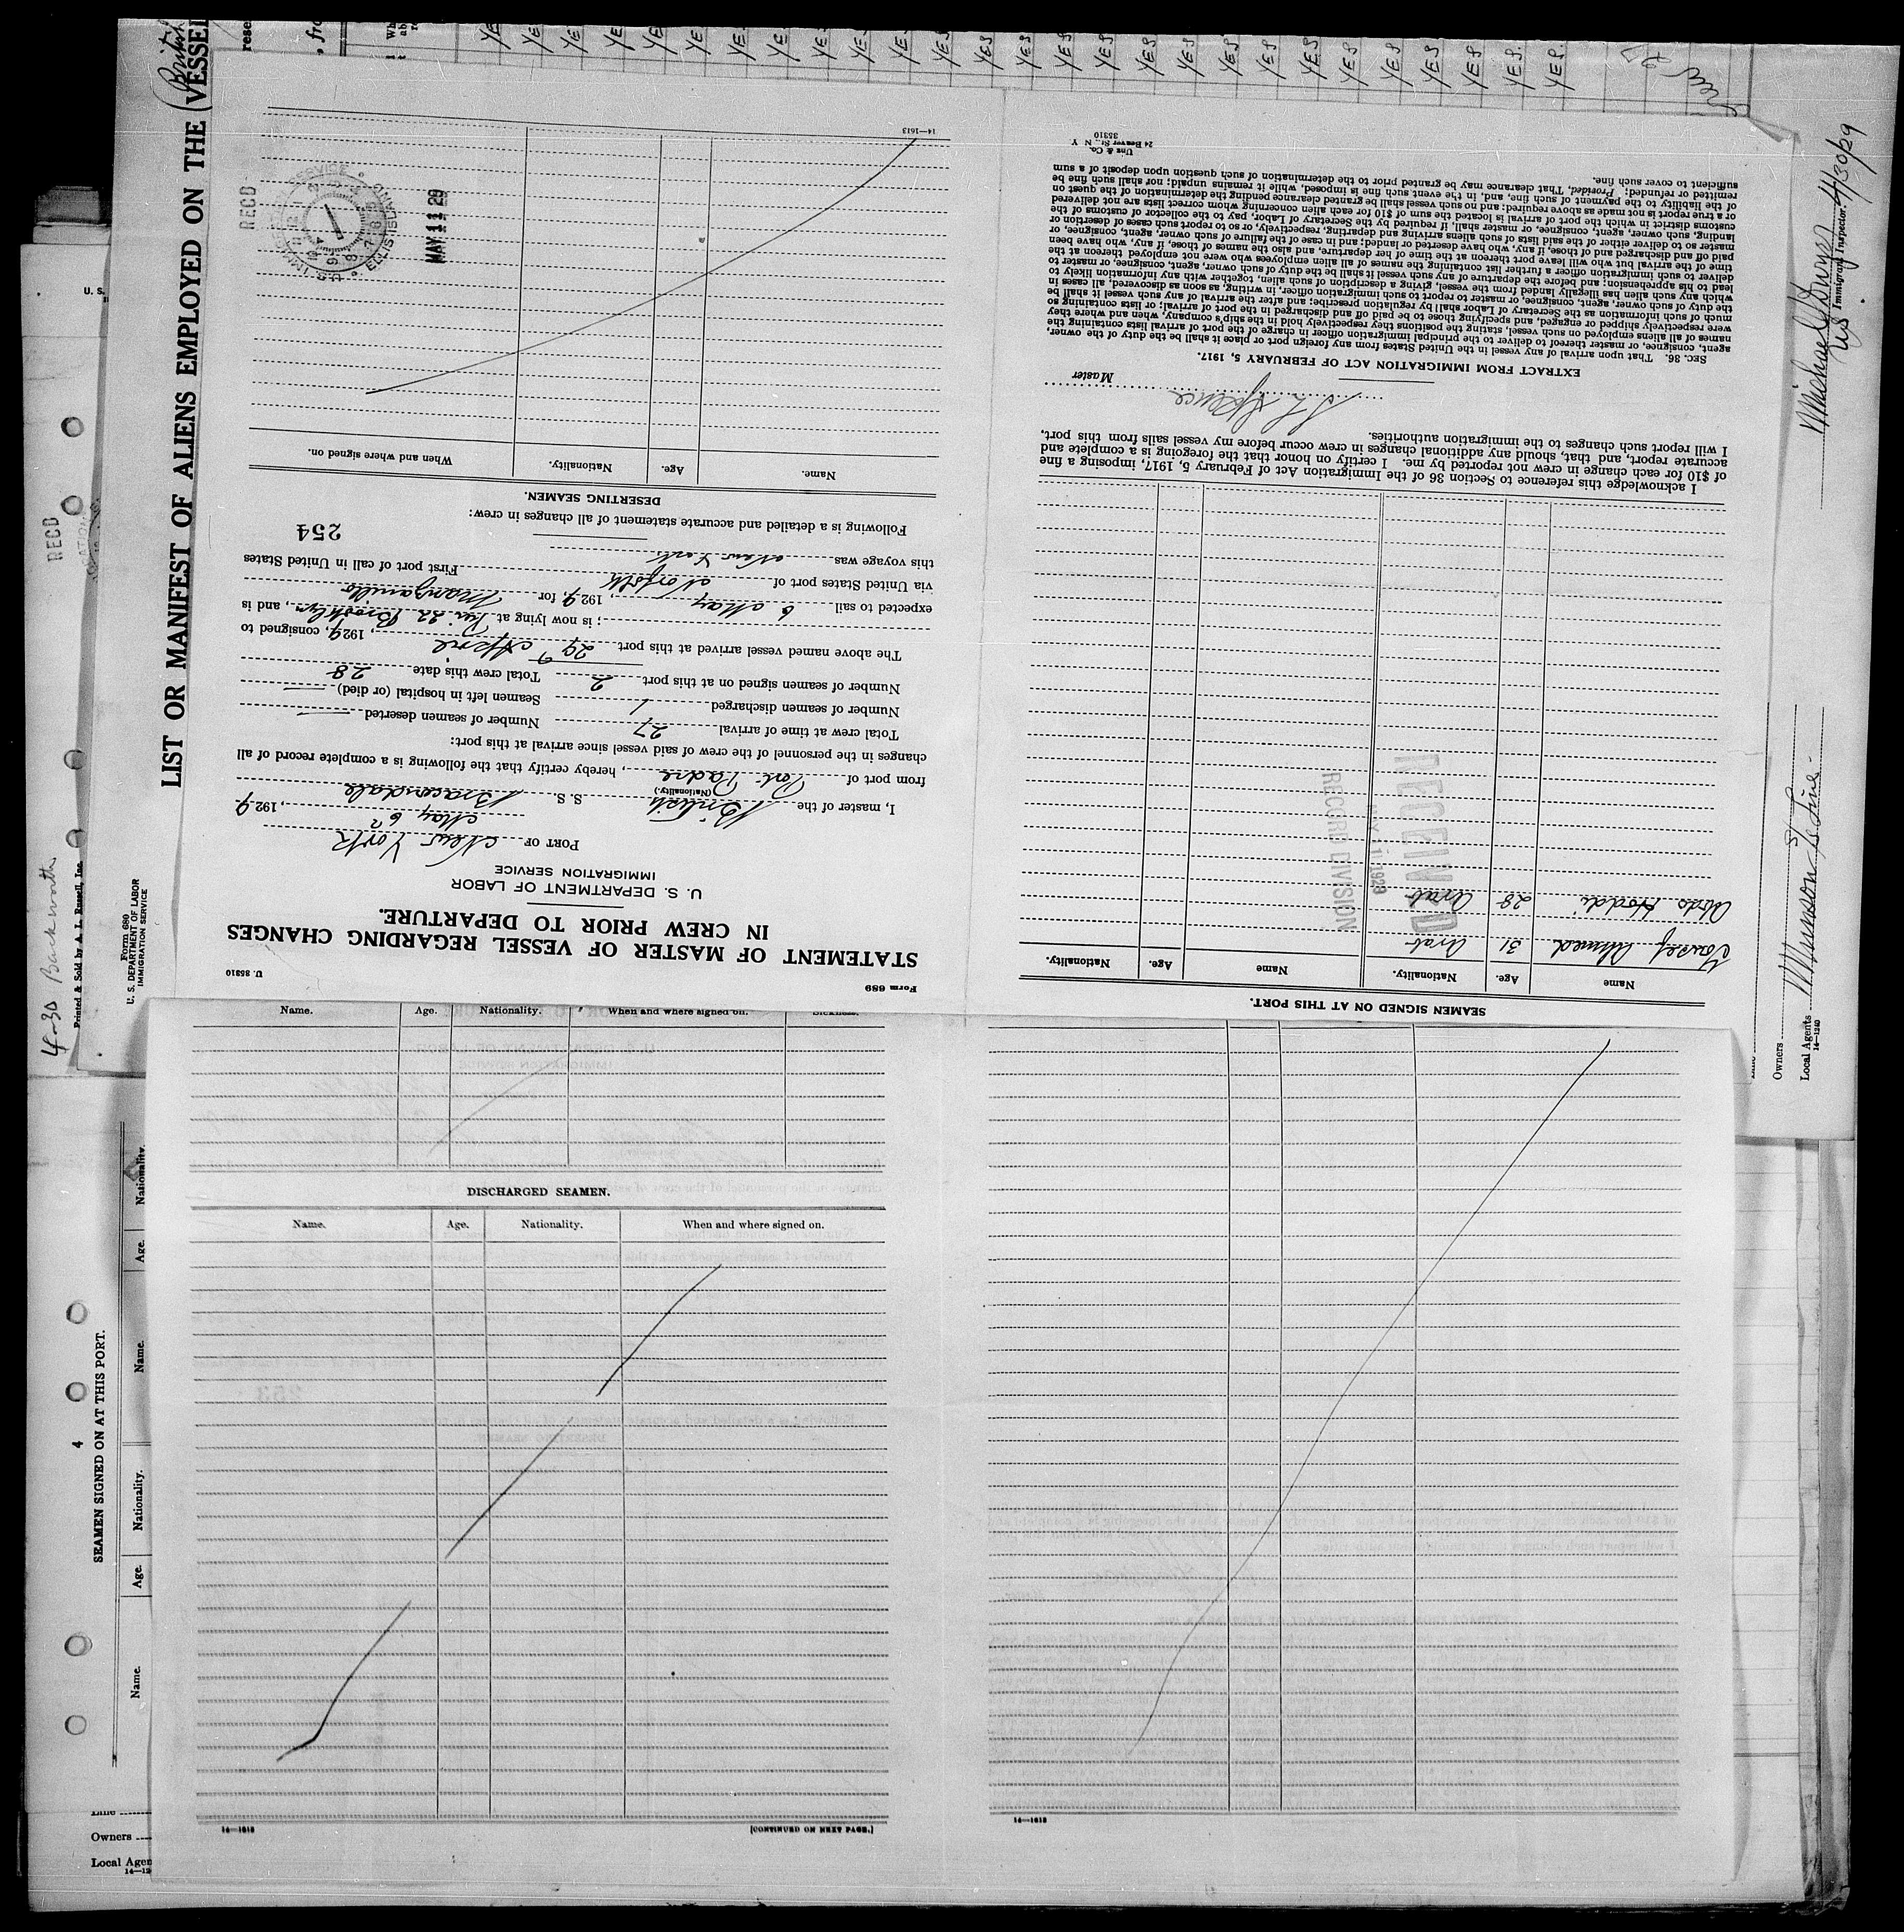 Form 689
U. 35310
STATEMENT OF MASTER OF VESSEL REGARDING CHANGES
IN CREW PRIOR TO DEPARTURE.
U. S. DEPARTMENT OF LABOR
IMMIGRATION SERVICE
PORT OF New York
May 6, 1929
I, master of the British S. S. Bracondale
(Nationality.)
from port of Port Padre, hereby certify that the following is a complete record of all
changes in the personnel of the crew of said vessel since arrival at this port:
Total crew at time of arrival 27 Number of seamen deserted
Number of seamen discharged 1 Seamen left in hospital (or died)
Number of seamen signed on at this port 2 Total crew this date 28
The above named vessel arrived at this port 29 April, 1929, consigned to
; is now lying at Pier 22 Brooklyn, and is
expected to sail 6 May, 1929 for Manzanillo
via United States port of Norfolk First port of call in United States
this voyage was New York
Following is a detailed and accurate statement of all changes in crew:
254
DESERTING SEAMEN.
Name. Age. Nationality. When and where signed on.
RECD
MAY 11 29
ELLIS ISLAND
14—1613
SEAMEN SIGNED ON AT THIS PORT.
Name Age. Nationality. Name Age. Nationality.
Yousef Ahmed 31 Arab
Abdo Hoddi 28 Arab
RECEIVED
MAY 11 1929
RECORD DIVISION
I acknowledge this reference to Section 36 of the Immigration Act of February 5, 1917, imposing a fine
of $10 for each change in crew not reported by me. I certify on honor that the foregoing is a complete and
accurate report, and that, should any additional changes in crew occur before my vessel sails from this port,
I will report such changes to the immigration authorities.
Spence
Master
EXTRACT FROM IMMIGRATION ACT OF FEBRUARY 5, 1917.
SEC. 36. That upon arrival of any vessel in the United States from any foreign port or place it shall be the duty of the owner,
agent, consignee, or master thereof to deliver to the principal immigration officer in charge of the port of arrival lists containing the
names of all aliens employed on such vessel, stating the positions they respectively hold in the ship's company, when and where they
were respectively shipped or engaged, and specifying those to be paid off and discharged in the port of arrival; or lists containing so
much of such information as the Secretary of Labor shall by regulation prescribe; and after the arrival of any such vessel it shall be
the duty of such owner, agent, consignee, or master to report to such immigration officer, in writing, as soon as discovered, all cases in
which any such alien has illegally landed from the vessel, giving a description of such alien, together with any information likely to
lead to his apprehension; and before the departure of any such vessel it shall be the duty of such owner, agent, consignee, or master to
deliver to such immigration officer a further list containing the names of all alien employees who were not employed thereon at the
time of the arrival but who will leave port thereon at the time of her departure, and also the names of those, if any, who have been
paid off and discharged and of those, if any, who have deserted or landed; and in case of the failure of such owner, agent, consignee, or
master so to deliver either of the said lists of such aliens arriving and departing, respectively, or so to report such cases of desertion or
landing, such owner, agent, consignee, or master shall, if required by the Secretary of Labor, pay to the collector of customs of the
customs district in which the port of arrival is located the sum of $10 for each alien concerning whom correct lists are not delivered
or a true report is not made as above required; and no such vessel shall be granted clearance pending the determination of the question
of the liability to the payment of such fine, and, in the event such fine is imposed, while it remains unpaid; nor shall such fine be
remitted or refunded; Provided, That clearance may be granted prior to the determination of such question upon deposit of a sum
sufficient to cover such fine.
Unz & Co.
24 Beaver St., N Y
35310
Name. Age. Nationality. When and where signed on. Sickness.
DISCHARGED SEAMEN.
Name. Age. Nationality. When and where signed on.
14—1613
[CONTINUED ON NEXT PAGE.]
14—1613
LIST OR MANIFEST OF ALIENS EMPLOYED ON THE VESSEL
British
4-30 Backworth
Printed & Sold by A. L. Russell, Inc.
Form 680
U. S. DEPARTMENT OF LABOR
IMMIGRATION SERVICE
RECD
4
SEAMEN SIGNED ON AT THIS PORT.
Name. Age. Nationality. Name. Age. Nationality.
Line
Owners
Local Agen
14—12
YES YES YES YES YES YES YES YES YES YES YES YES YES YES YES YES YES YES YES YES YES YES YES YES YES YES. YES.
4/30/29
US Immigrant Inspector.
Owners
Local Agents Munson Line
14—1240